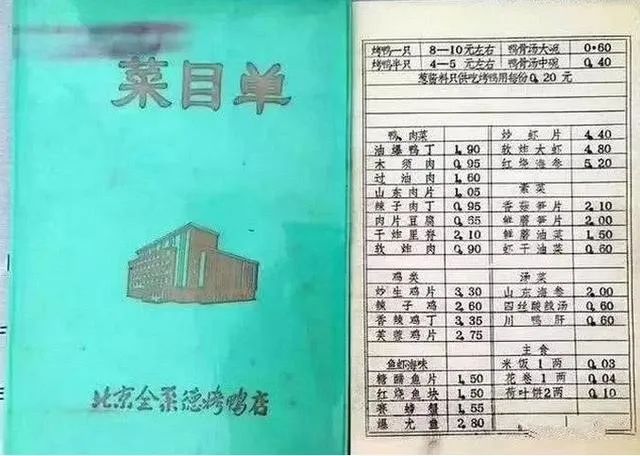 菜目单
北京全聚德烤鸭店
烤鸭一只 8—10元左右 鸭骨汤大碗 0.60
烤鸭半只 4—5元左右 鸭骨汤中碗 0.40
葱酱料只供吃烤鸭用每份0.20元
鸭、肉菜
油爆鸭丁 1.90
木须肉 0.95
过油肉 1.60
山东肉片 1.05
辣子肉丁 0.95
肉片豆腐 0.55
干炸里脊 2.10
软炸肉 0.90
鸡类
炒生鸡片 3.30
辣子鸡 2.60
香辣鸡丁 3.35
芙蓉鸡片 2.75
鱼虾海味
糟醋鱼片 1.50
红烧鱼块 1.50
赛螃蟹 1.55
爆尤鱼 2.80
炒虾片 4.40
软炸大虾 4.80
红烧海参 5.20
素菜
香菇笋片 2.10
鲜蘑笋片 2.00
鲜蘑油菜 1.50
虾干油菜 0.60
汤菜
山东海参 2.00
四丝酸辣汤 0.60
川鸭肝 0.60
主食
米饭1两 0.03
花卷1两 0.04
荷叶饼2两 0.10